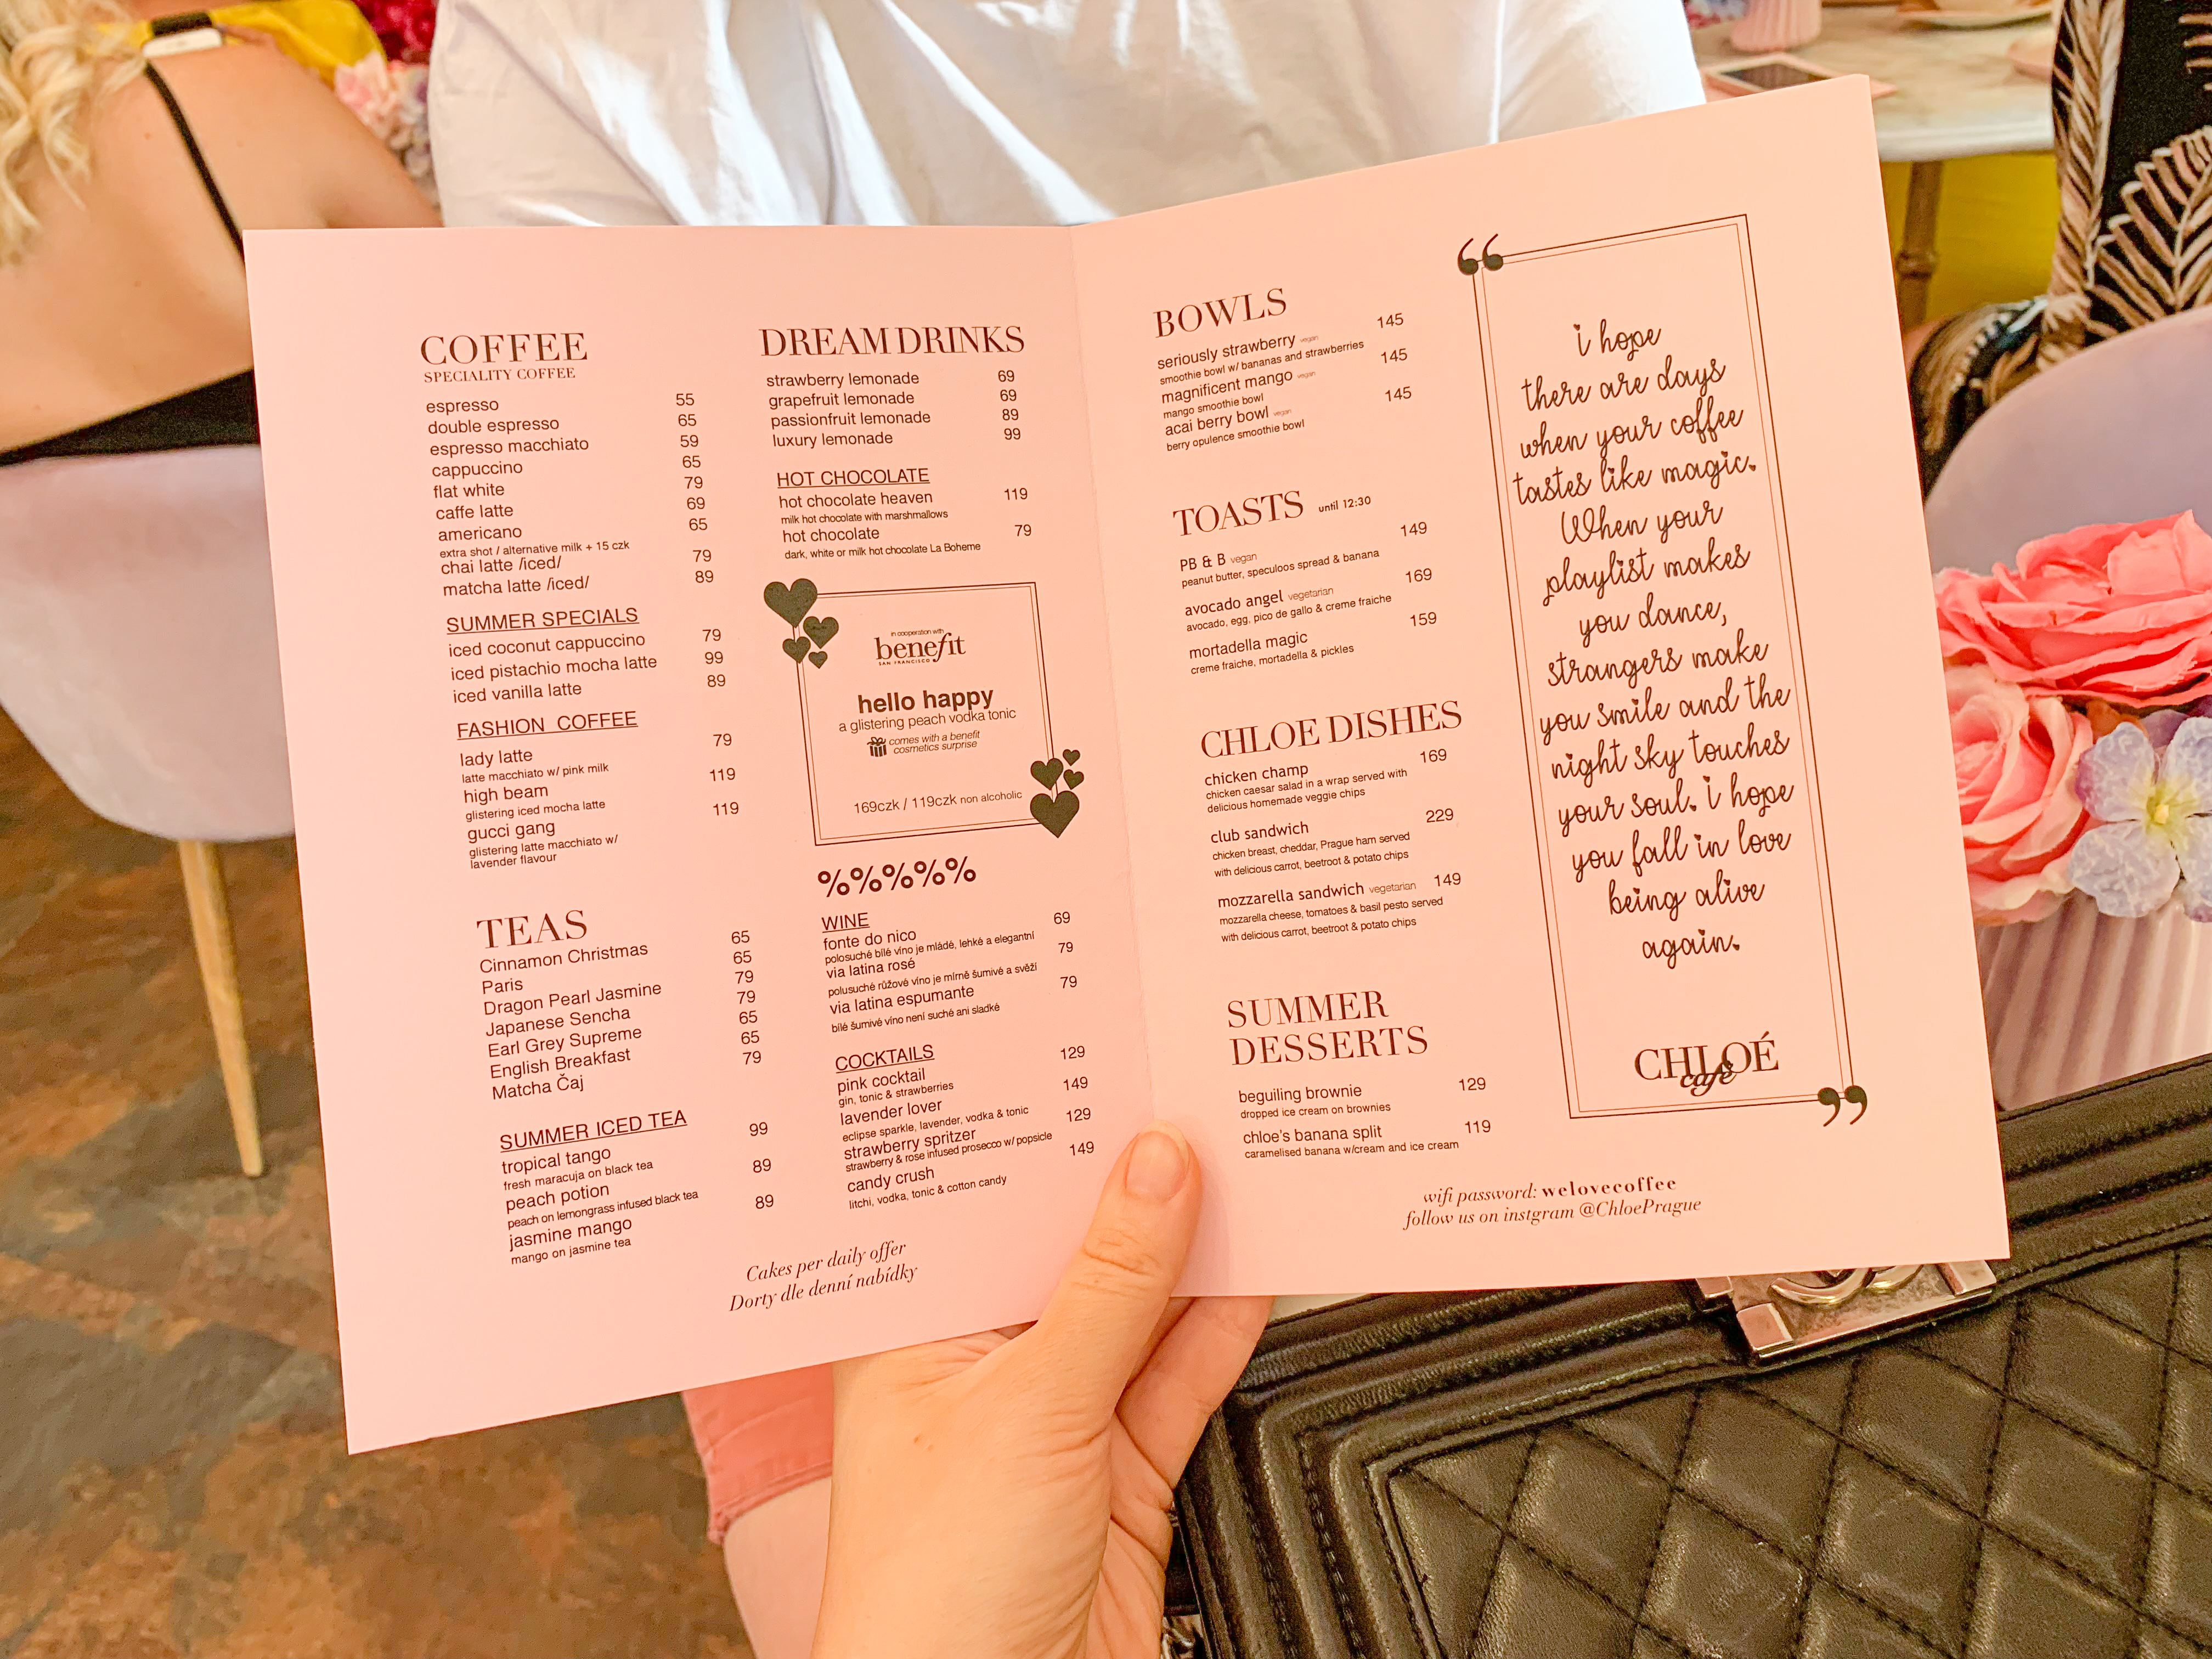 COFFEE
SPECIALITY COFFEE
espresso 55
double espresso 65
espresso macchiato 59
cappuccino 65
flat white 79
caffe latte 69
americano 65
extra shot / alternative milk + 15 czk
chai latte /iced/ 79
matcha latte /iced/ 89
SUMMER SPECIALS
iced coconut cappuccino 79
iced pistachio mocha latte 99
iced vanilla latte 89
FASHION COFFEE
lady latte 79
latte macchiato w/ pink milk
high beam 119
glistering iced mocha latte
gucci gang 119
glistering latte macchiato w/
lavender flavour
TEAS
Cinnamon Christmas 65
Paris 65
Dragon Pearl Jasmine 79
Japanese Sencha 79
Earl Grey Supreme 65
English Breakfast 65
Matcha Čaj 79
SUMMER ICED TEA
tropical tango 99
fresh maracuja on black tea
peach potion 89
peach on lemongrass infused black tea
jasmine mango 89
mango on jasmine tea
DREAM DRINKS
strawberry lemonade 69
grapefruit lemonade 69
passionfruit lemonade 89
luxury lemonade 99
HOT CHOCOLATE
hot chocolate heaven 119
milk hot chocolate with marshmallows
hot chocolate 79
dark, white or milk hot chocolate La Boheme
in cooperation with
benefit
SAN FRANCISCO
hello happy
a glistering peach vodka tonic
comes with a benefit
cosmetics surprise
169czk / 119czk non alcoholic
%%%%%
WINE
fonte do nico 69
polosuché bílé víno je mládé, lehké a elegantní
via latina rosé 79
polusuché růžové víno je mírně šumivé a svěží
via latina espumante 79
bílé šumivé víno není suché ani sladké
COCKTAILS
pink cocktail 129
gin, tonic & strawberries
lavender lover 149
eclipse sparkle, lavender, vodka & tonic
strawberry spritzer 129
strawberry & rose infused prosecco w/ popsicle
candy crush 149
litchi, vodka, tonic & cotton candy
Cakes per daily offer
Dorty dle denní nabídky
BOWLS
seriously strawberry vegan 145
smoothie bowl w/ bananas and strawberries
magnificent mango vegan 145
mango smoothie bowl
acai berry bowl vegan 145
berry opulence smoothie bowl
TOASTS until 12:30
PB & B vegan 149
peanut butter, speculoos spread & banana
avocado angel vegetarian 169
avocado, egg, pico de gallo & creme fraiche
mortadella magic 159
creme fraiche, mortadella & pickles
CHLOE DISHES
chicken champ 169
chicken caesar salad in a wrap served with
delicious homemade veggie chips
club sandwich 229
chicken breast, cheddar, Prague ham served
with delicious carrot, beetroot & potato chips
mozzarella sandwich vegetarian 149
mozzarella cheese, tomatoes & basil pesto served
with delicious carrot, beetroot & potato chips
SUMMER
DESSERTS
beguiling brownie 129
dropped ice cream on brownies
chloe's banana split 119
caramelised banana w/cream and ice cream
“
i hope
there are days
when your coffee
tastes like magic.
When your
playlist makes
you dance,
strangers make
you smile and the
night sky touches
your soul. i hope
you fall in love
being alive
again.
CHLOÉ
café
”
wifi password: welovecoffee
follow us on instgram @ChloePrague